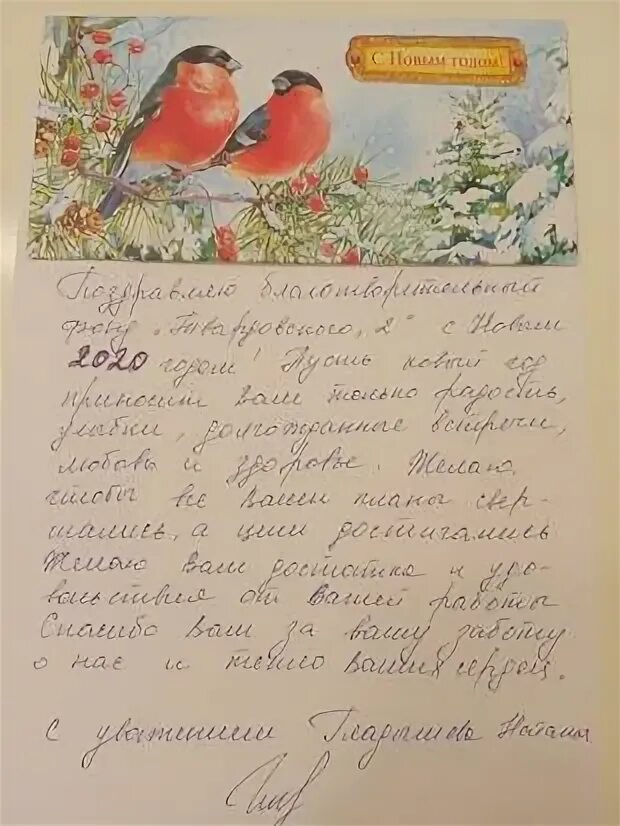 С Новым годом!
Поздравляю благотворительный
фонд „Твардовского, 2" с Новым
2020 годом! Пусть новый год
приносит Вам только радость,
улыбки, долгожданные встречи,
любовь и здоровье. Желаю,
чтобы все Ваши планы свер-
шались, а цели достигались
Желаю Вам достатка и удо-
вольствия от Вашей работы
Спасибо Вам за вашу заботу
о нас и тепло Ваших сердец.
С уважением Гладышева Наталия